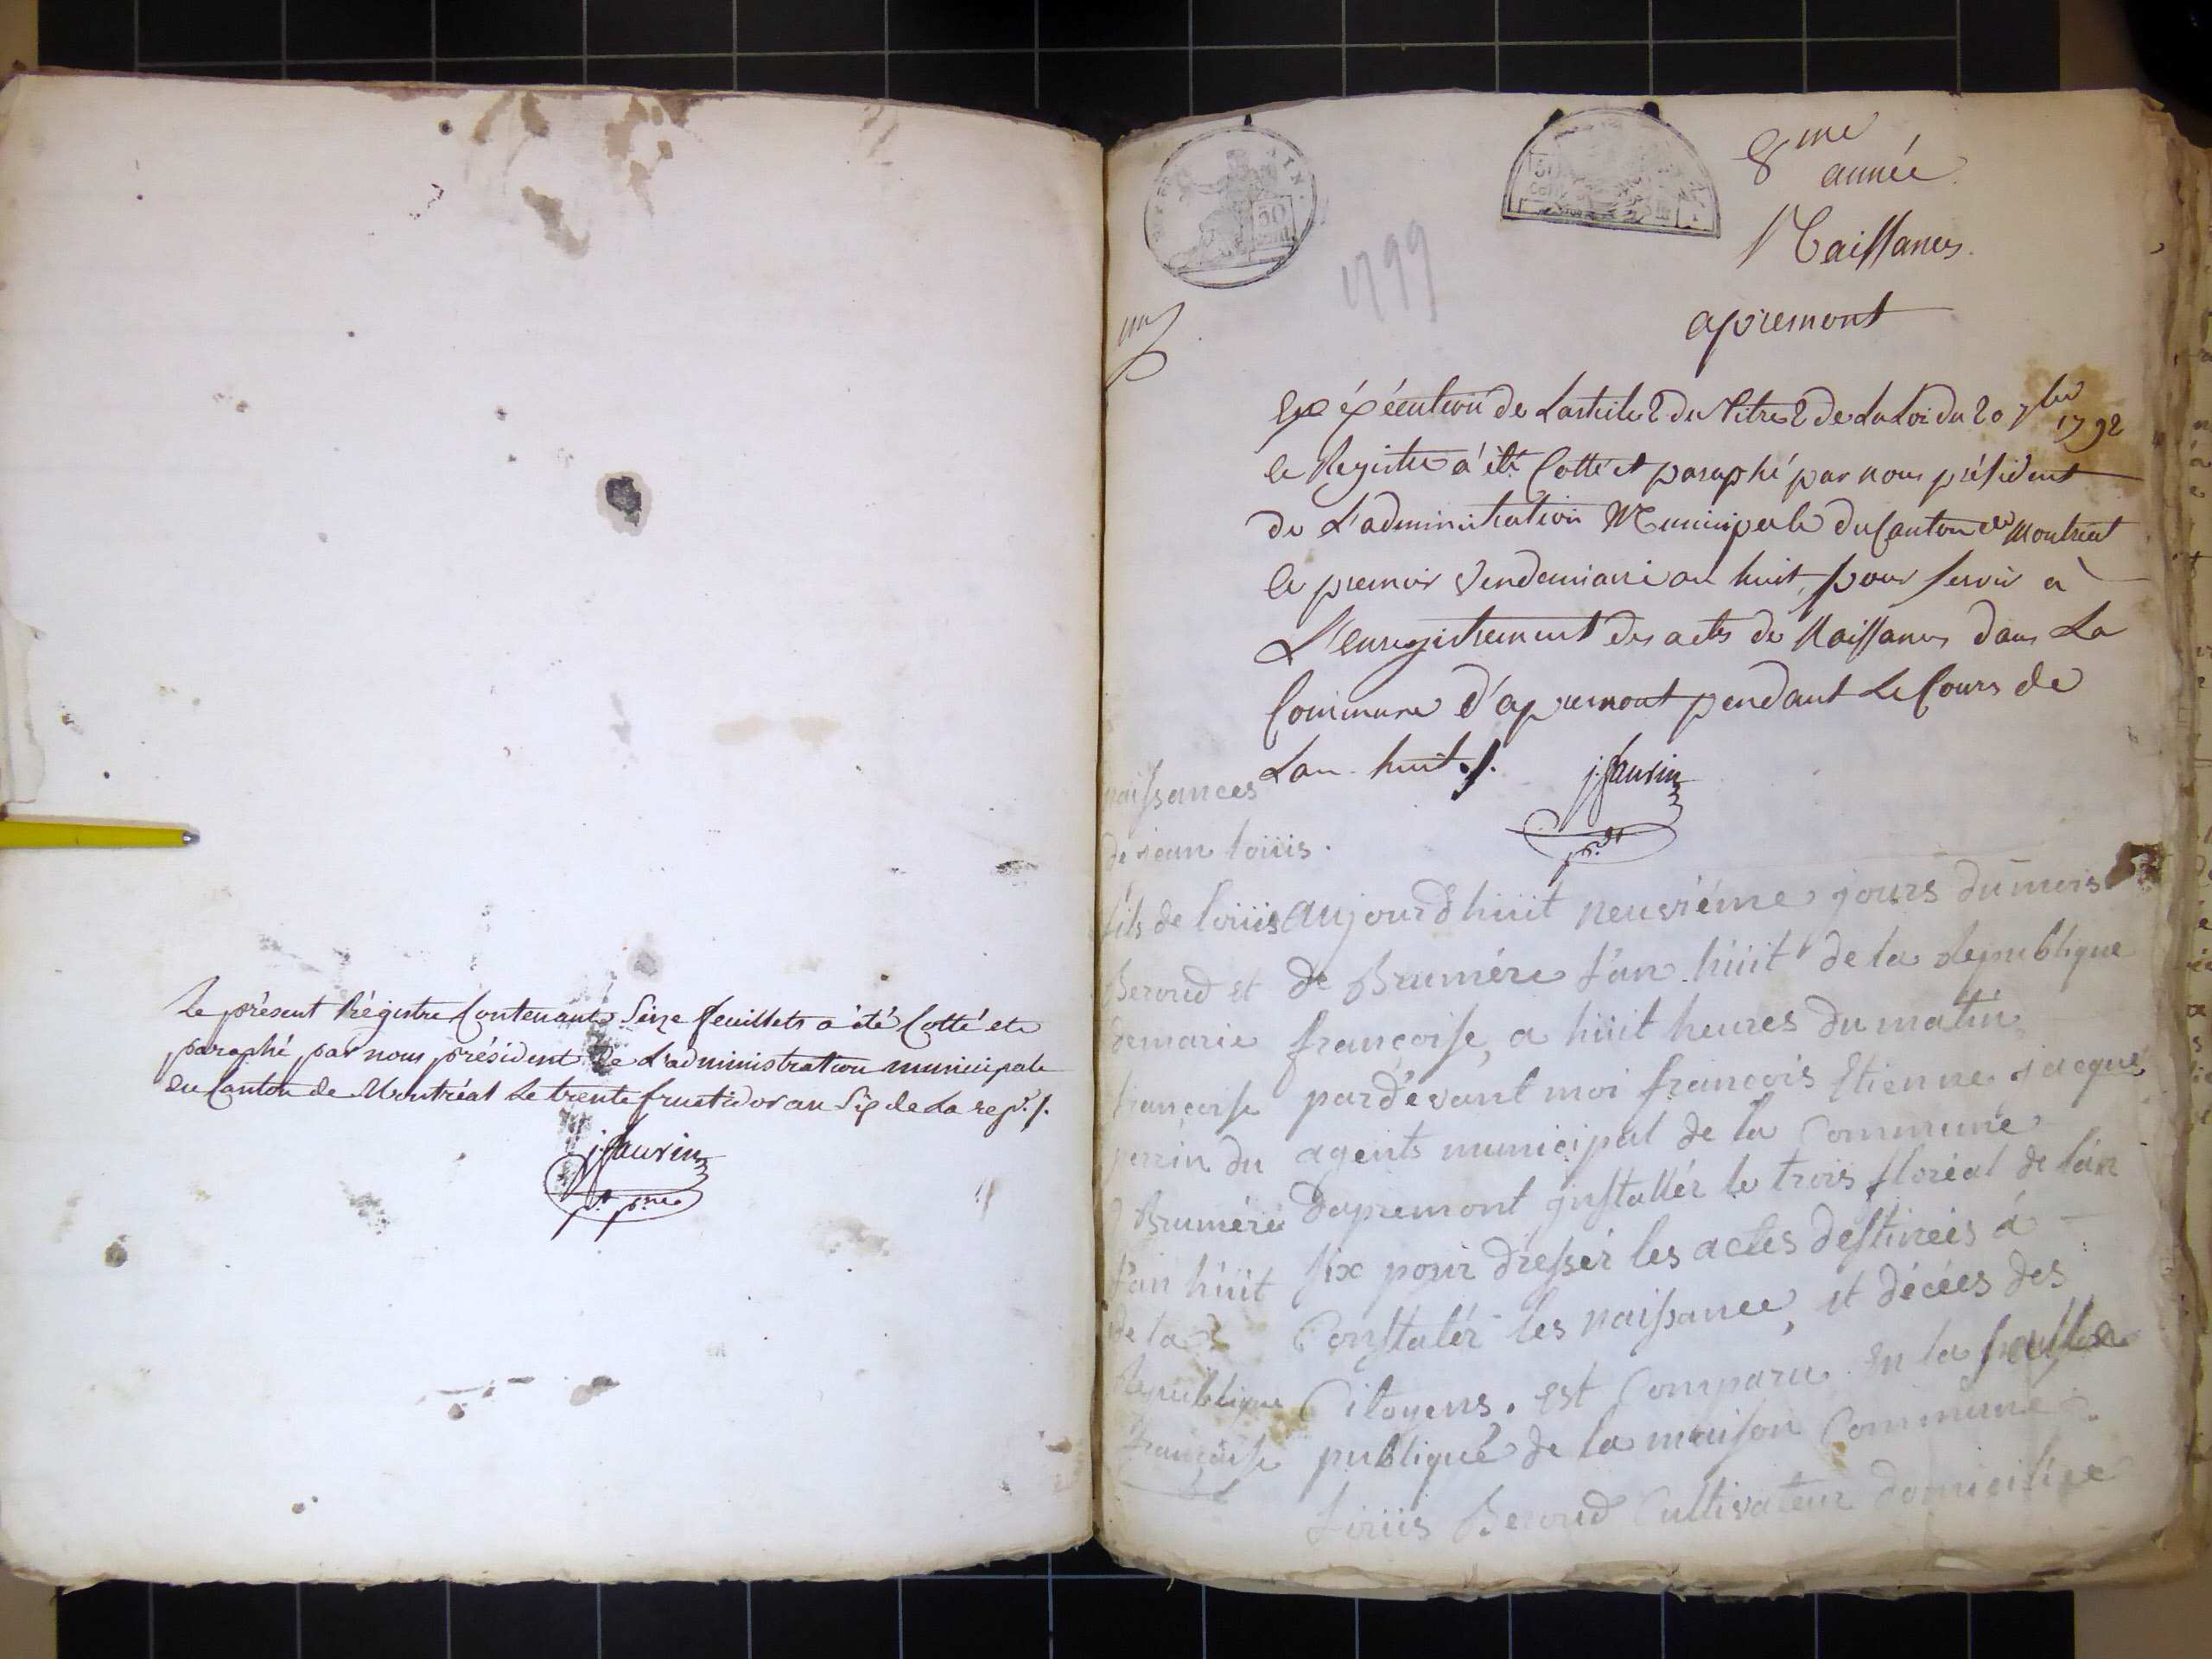 Le présent Régistre Contenant Seize feuillets a été Cotté et
paraphé par nous président de L'administration municipale
du Canton de Montréal Le trente fructidor an Six de La rep.e /.
j. Saurin
p.t
8me
année
Naissances.
apremont
1799
un
En éxécution de L'article 2 du Titre 2 de La Loi du 20 7bre 1792
le Registre a été Cotté et paraphé par nous président
de L'administration Municipale du Canton de Montreal
le premier Vendemiaire an huit, pour servir a
L'enregistrement des actes de Naissances dans La
Commune d'apremont pendant Le Cours de
Lan huit /.
j. Saurin
p.dt
naissances
de jean loüis.
fils de loüis
Beroud et
demarie
françoise
perrin du
9 Bruméré
l'an hüit
de la
Republique
française
aujourdhüit neuviéme jours du mois
de Brumére l'an hüit de la Republique
françoise, a hüit heures du matin
pardévant moi françois Etienne jacque
agents municipal de la Commune
dapremont jnstallér le trois floréal de l'an
six pour dressér les actes destineés à
Constatér les naissance, et décées des
Citoyens. est Comparu en la
publique de la maison Commune
Loüis Beroud Cultivateur domicilIée